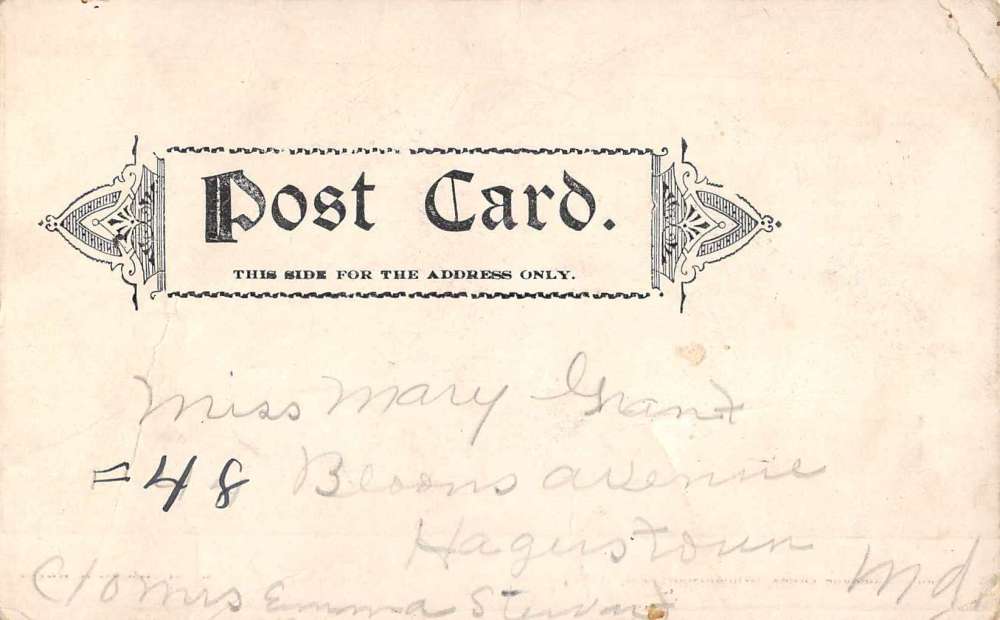 Post Card.
THIS SIDE FOR THE ADDRESS ONLY.
Miss Mary Grant
=48 Bloons avenue
Hagerstown Md,
C/o Mrs Emma Stewart